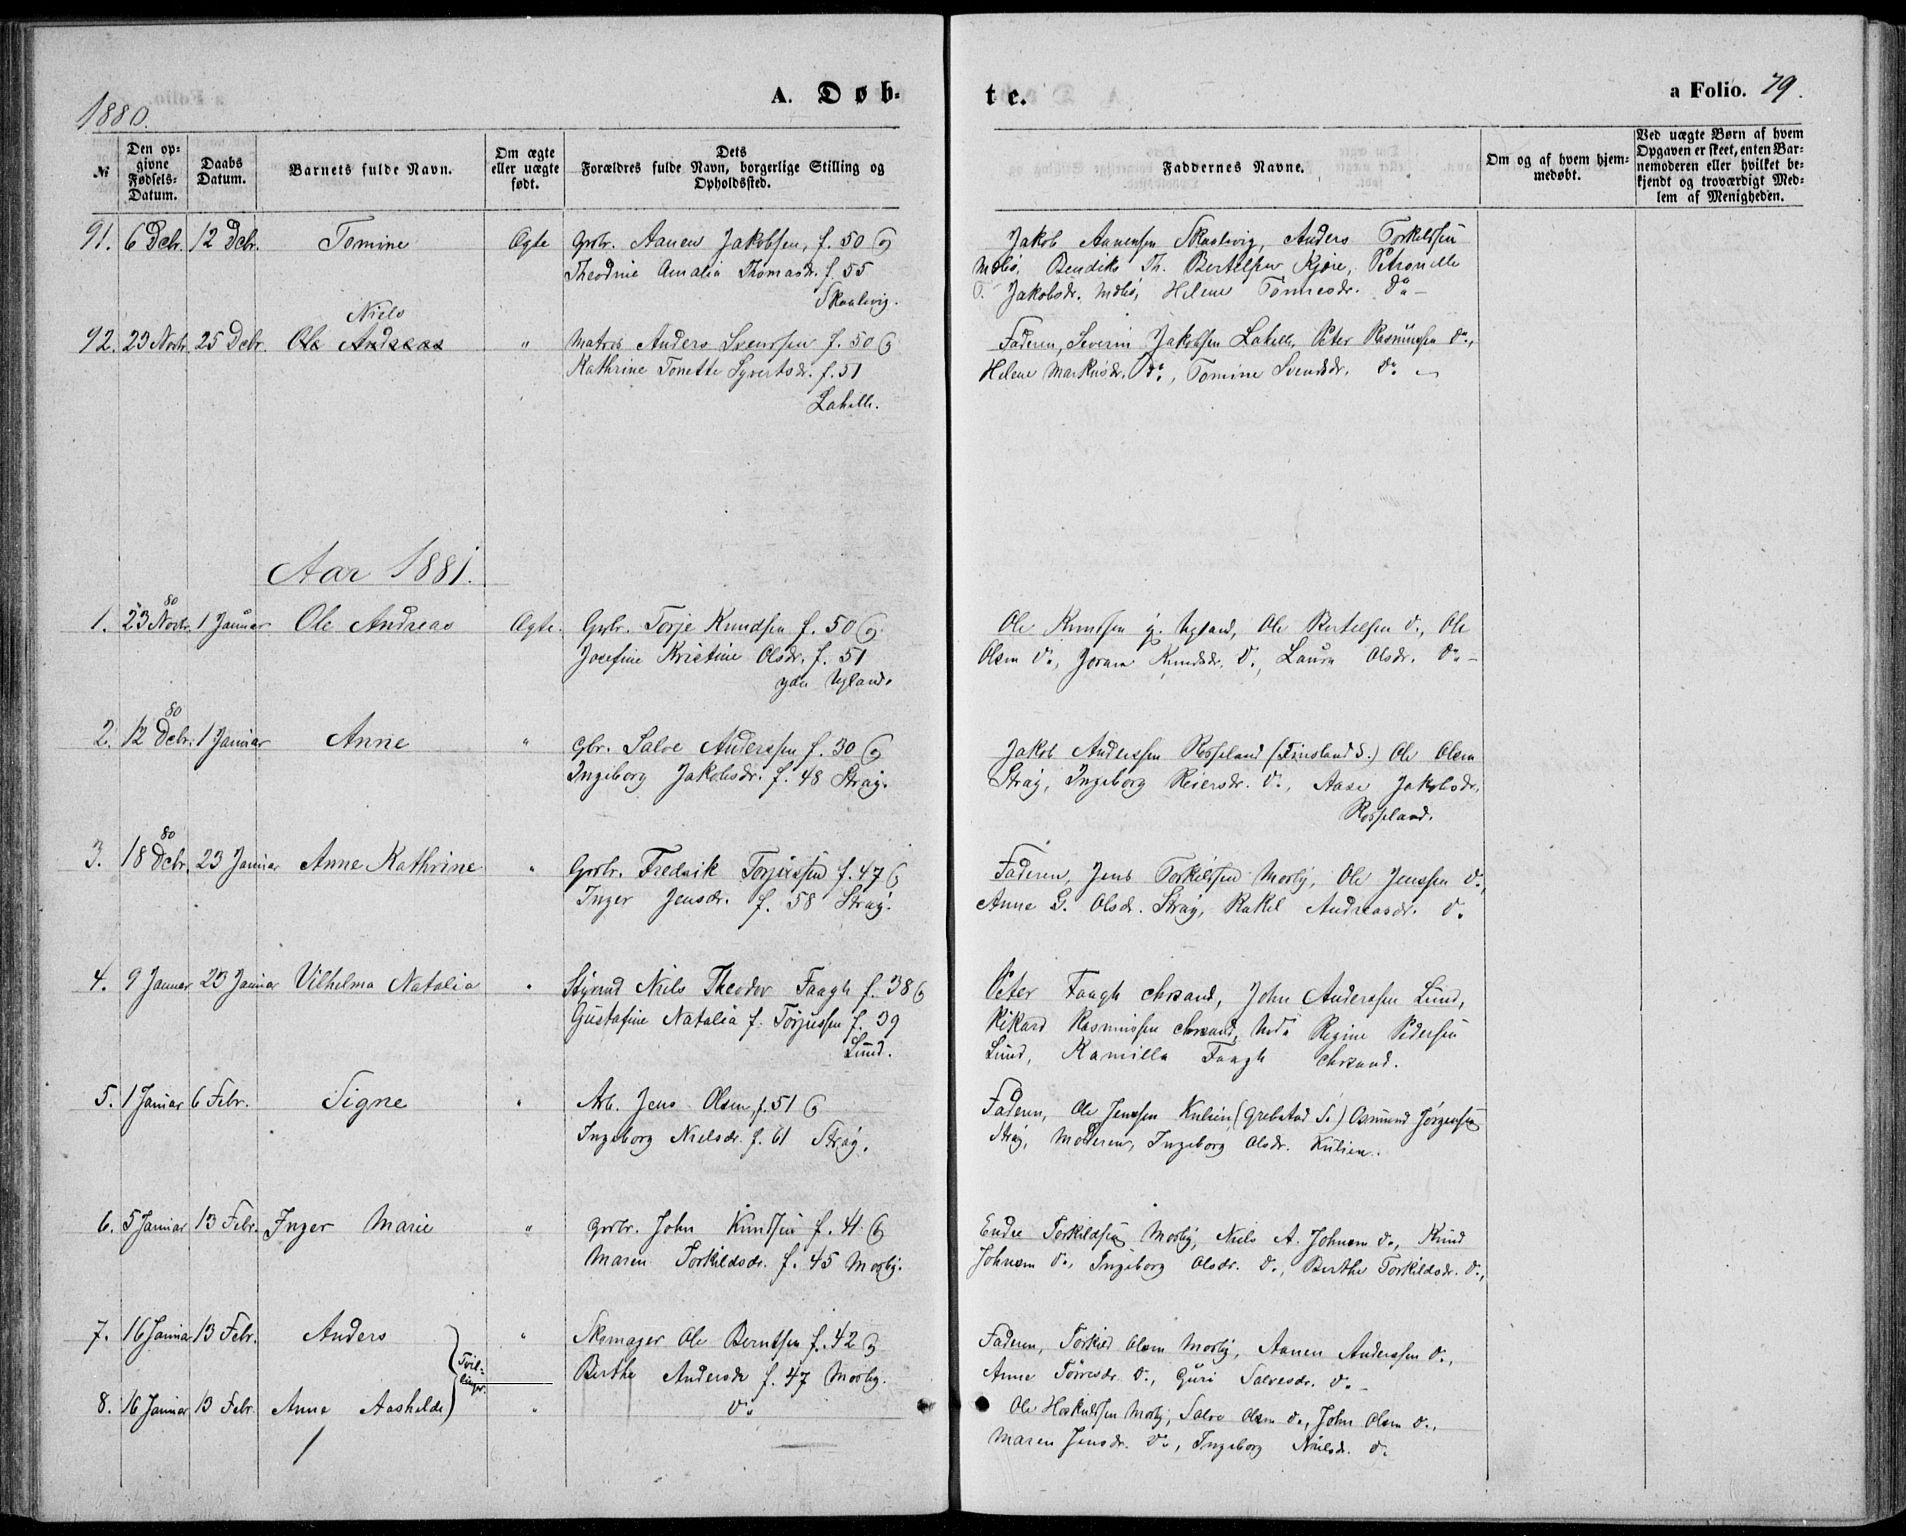 1880.
A. Døb-
te.
a Folio. 79.
№
Den op-
givne
Fødsels-
Datum.
Daabs
Datum.
Barnets fulde Navn.
Om ægte
eller uægte
født.
Dets
Forældres fulde Navn, borgerlige Stilling og
Opholdssted.
Faddernes Navne.
Om og af hvem hjem-
medøbt.
Ved uægte Børn af hvem
Opgaven er skeet, enten Bar-
nemoderen eller hvilket be-
kjendt og troværdigt Med-
lem af Menigheden.
91. 6 Dcbr. 12 Dcbr. Tomine Ægte Grbr. Aanen Jakobsen, f. 50 og
Theodine Amalia Thomasdr. f. 55
Skaalevig.
Jakob Aanensen Skaalevig, Anders Torkildsen
Bendiks Th. Bertelsen Kjære, Petronille
Jakobsdr. Helene Tønnesdr. do –
92. 23 Novbr. 25 Dcbr. Ole Andreas " Matros Anders Svendsen f. 50 og
Niels
Kathrine Tonette Syvertsdr. f. 51
Lahelle.
Faderen, Severin Jakobsen Lahelle, Peter Rasmussen do.,
Helene Markusdr. do., Tomine Svendsdr. do –
Aar 1881.
1. 23 Novbr. 80 1 Januar Ole Andreas Ægte. Grbr. Torje Knudsen f. 50 og
Josefine Kristine Olsdr. f. 51
ydre Ugland.
Ole Knudsen y. Ugland, Ole Bertelsen do., Ole
Olsen do., Joran Knudsdr. do., Laura Olsdr. do –
2. 12 Dcbr. 80 1 Januar Anne " Gbr. Salve Anderssen f. 30 og
Ingeborg Jakobsdr. f. 48 Straj.
Jakob Anderssen Rosseland (Finsland S.) Ole Olsen
Straj, Ingeborg Reiersdr. do., Aase Jakobsdr.
Rosseland.
3. 18 Dcbr. 80 23 Januar Anne Kathrine " Grbr. Fredrik Torjussen f. 47 og
Inger Jensdr. f. 58 Straj.
Faderen, Jens Torkildsen Mosby, Ole Jenssen do.,
Anne G. Olsdr. Straj, Rakel Andreasdr. do.
4. 9 Januar 23 Januar Vilhelma Natalia " Styrmd Niels Theodor Faagh f. 38 og
Gustafine Natalia f. Torjussen f. 39
Lund.
Peter Faagh Chrsand, John Anderssen Lund,
Rikard Rasmussen Chrsand, Regine Pedersen
Lund, Kamilla Faagh Chrsand.
5. 1 Januar 6 Febr. Signe " Arb. Jens Olsen f. 51 og
Ingeborg Nielsdr. f. 61 Straj.
Faderen, Ole Jenssen Kulien, (Grebstad S.) Osmund Jørgensen
Straj, Moderen, Ingeborg Olsdr. Kulien.
6. 5 Januar 13 Febr. Inger Marie " Grbr. John Knudsen f. 41 og
Maren Torkildsdr. f. 45 Mosby.
Endre Torkildsen Mosby, Niels A. Johnsen do., Knud
Johnsen do., Ingeborg Olsdr. do., Berthe Torkildsdr. do.,
7. 16 Januar 13 Febr. Anders " Skomager Ole Berntsen f. 42 og
Tvil-
linger.
Berthe Andersdr f. 47 Mosby.
Faderen, Torkild Olsen Mosby, Aanen Anderssen do.,
Anne Tørresdr. do., Guri Salvesdr. do –
8. 16 Januar 13 Febr. Anne Aashilde " do.
Ole Hoskuldsen Mosby, Salve Olsen do., John Olsen do.,
Maren Jensdr. do., Ingeborg Nielsdr. do.